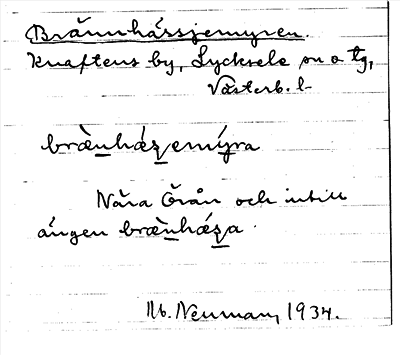 Brännhässjemyren.
Knaftens by, Lycksele sn o tg,
Västerb. l.
bræ̀nhǽʒemýra
Nära Örån och intill
ängen bræ̀nhǽʒa.
M. Neuman, 1934.